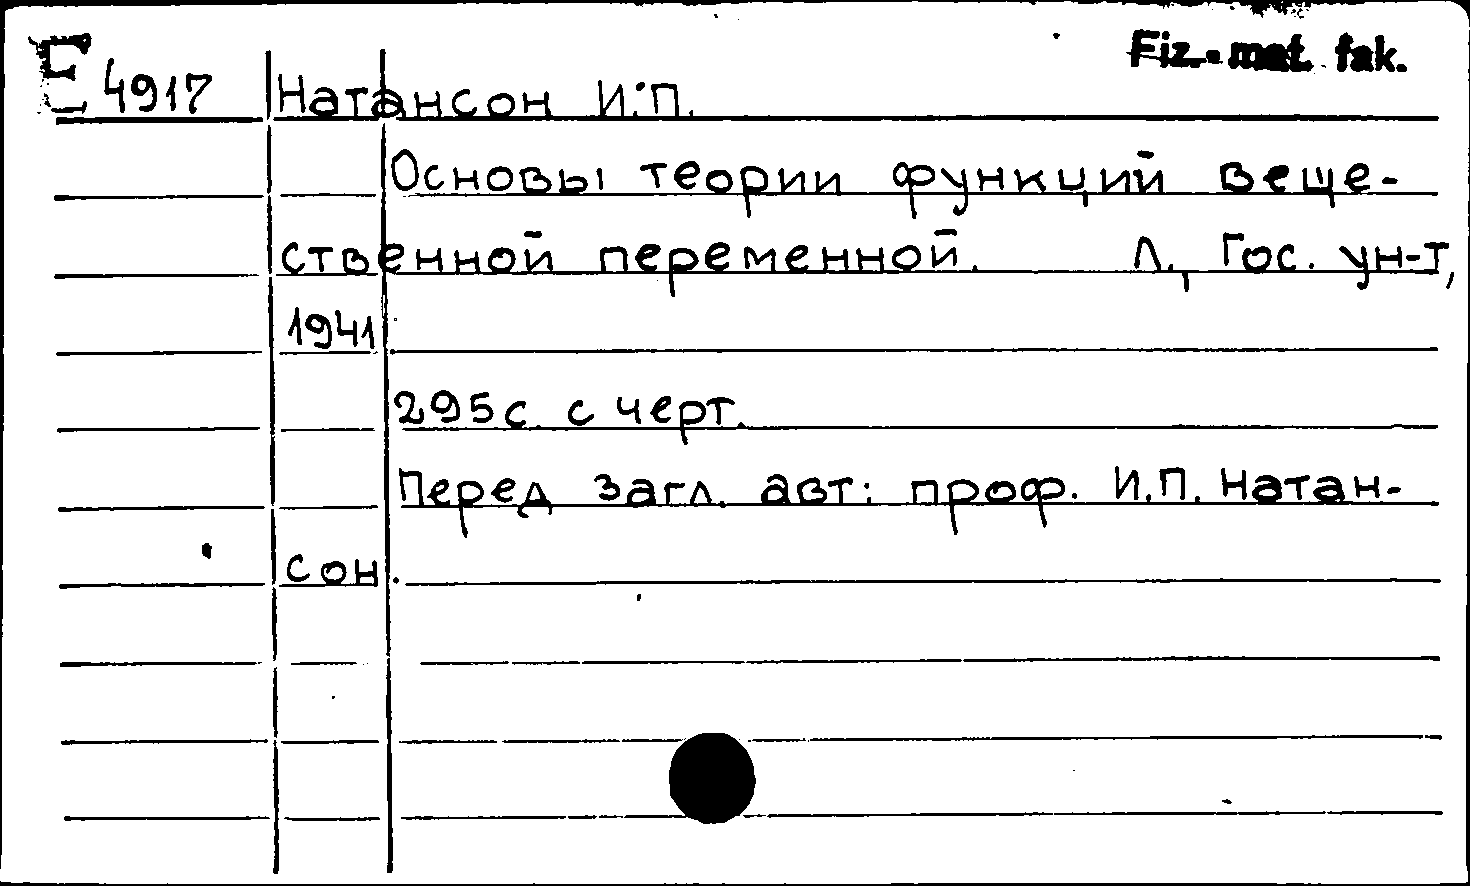 Fiz.-mat. fak.
E 4917 Натансон И.П.
Основы теории функций веще-
ственной переменной. Л., Гос. ун-т,
1941.
295с. с черт.
Перед загл. авт: проф. И.П. Натан-
сон.